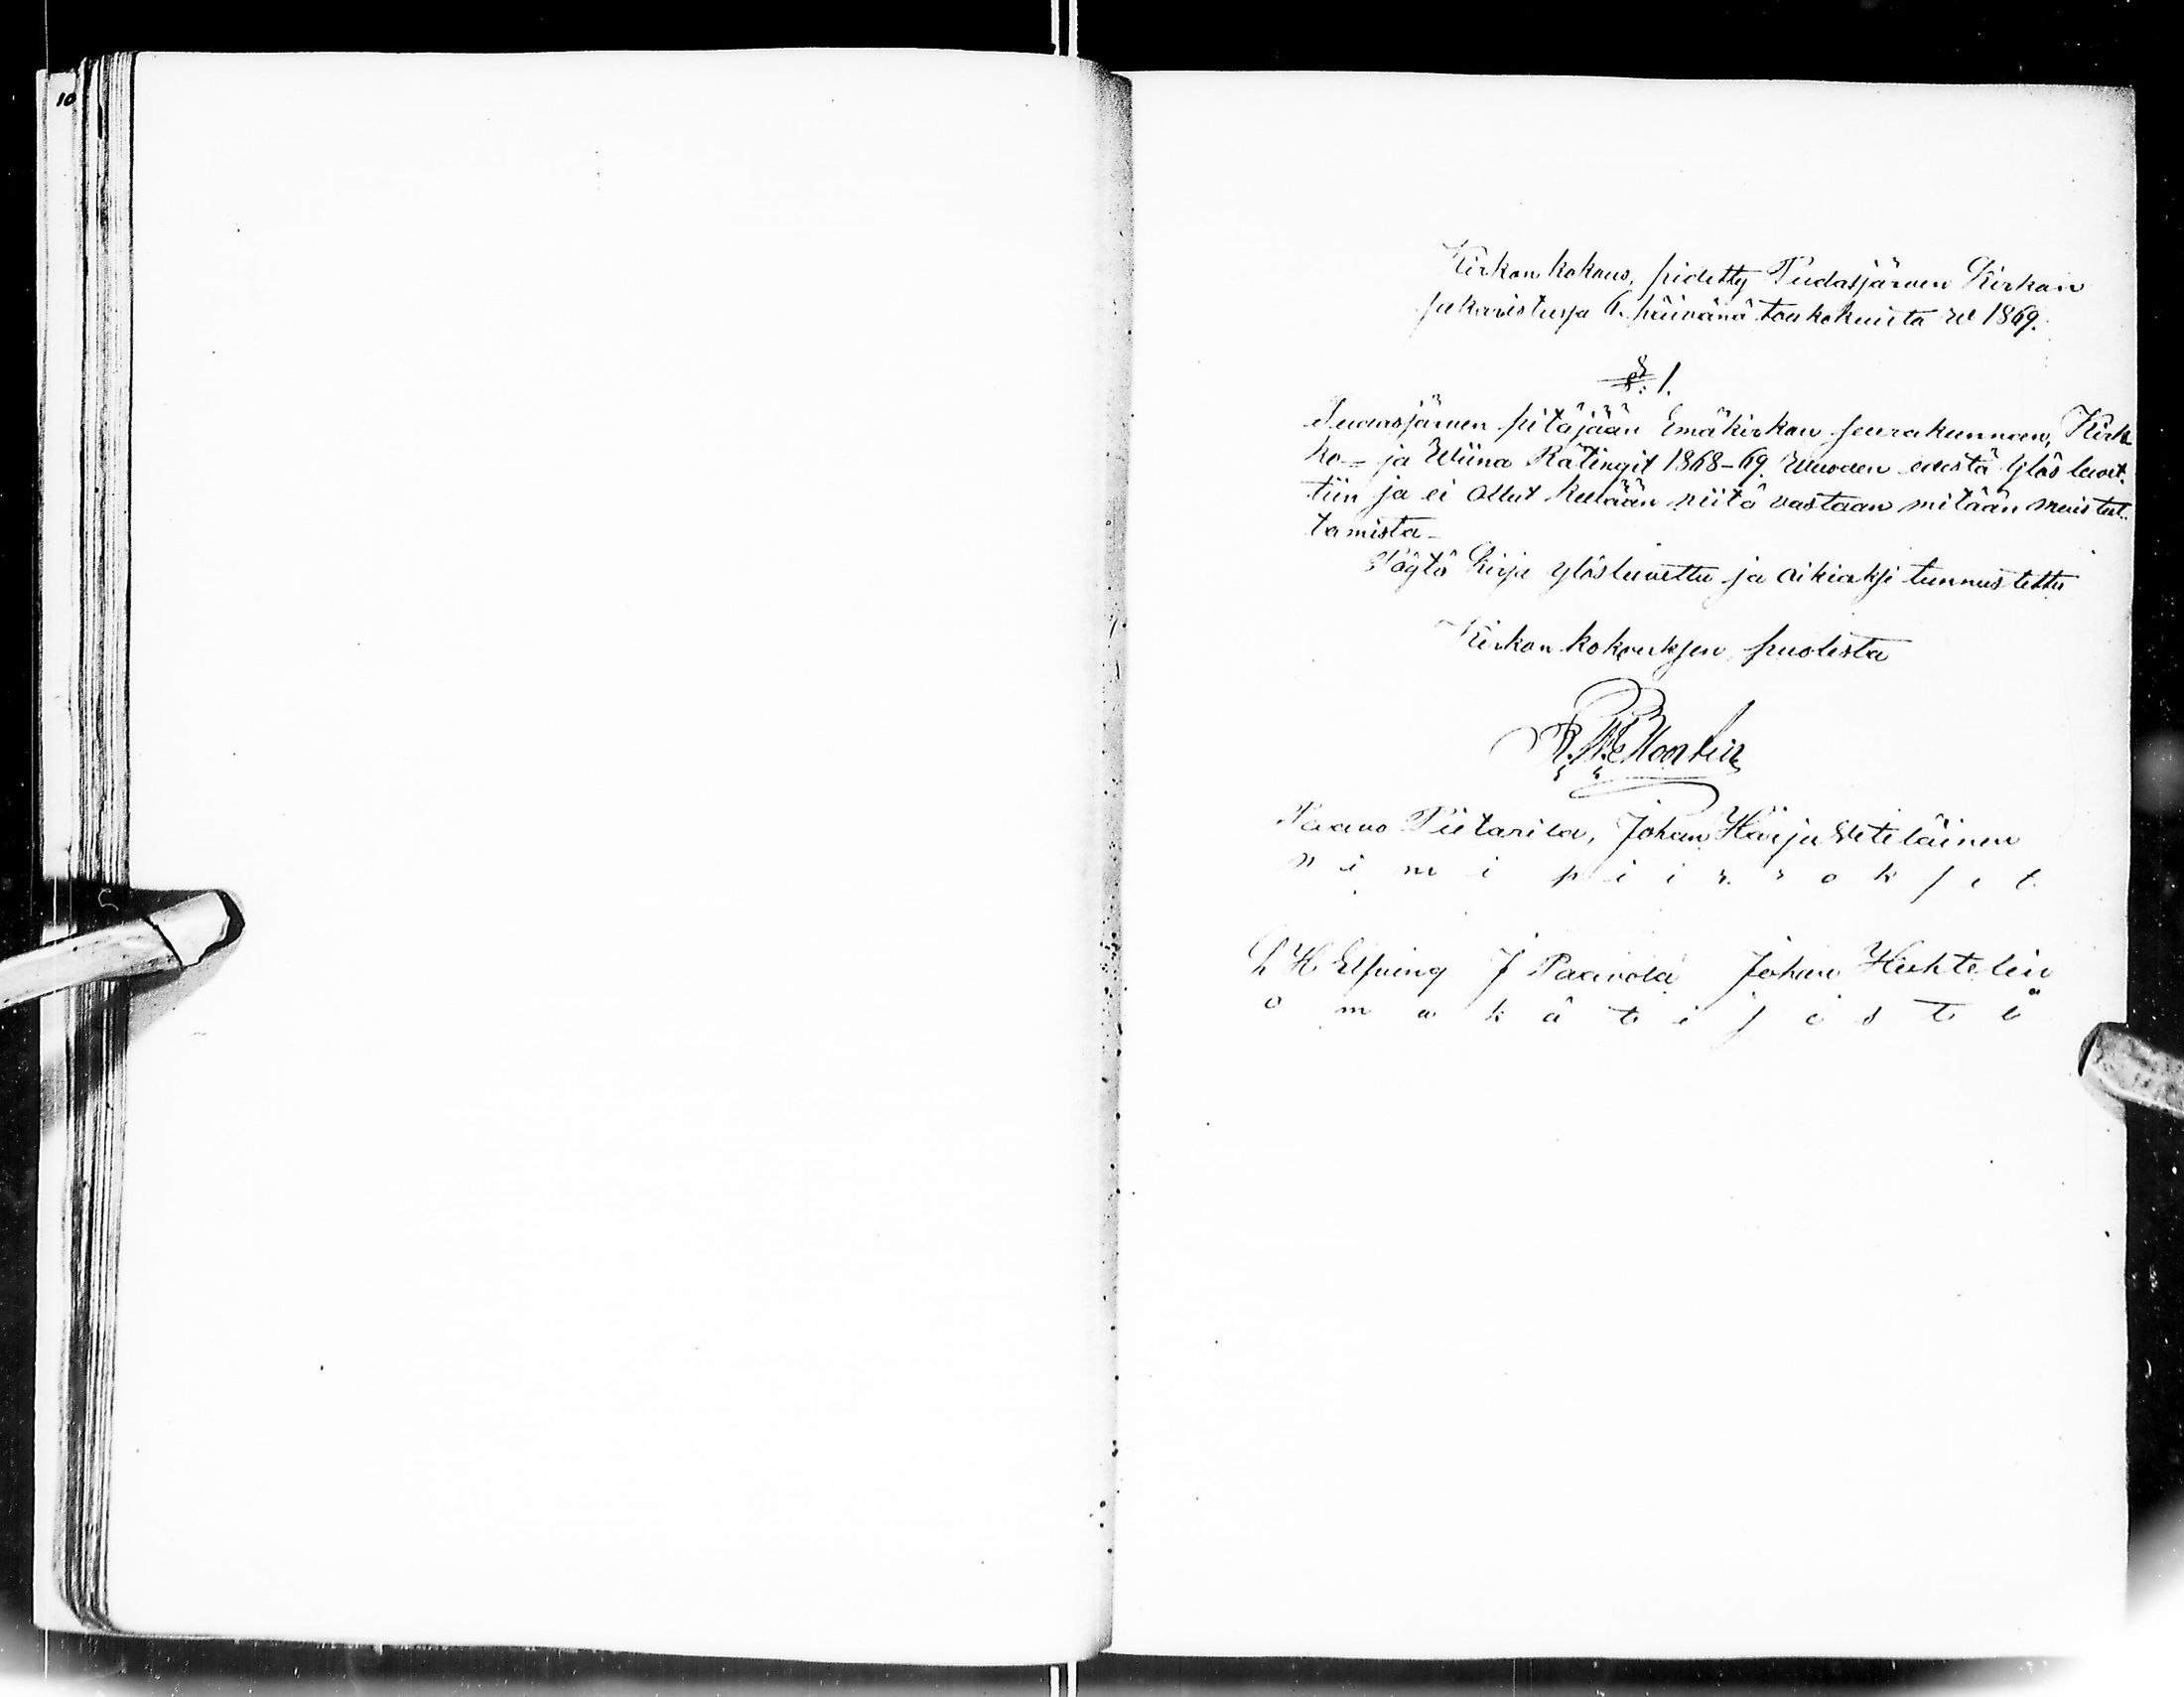 10
Kirkon kokous, pidetty Pudasjärven Kirkon
sakaristussa 6. päivänä toukokuuta w 1869.
§: 1.
Pudasjärven pitäjään Emäkirkon seurakunnan, Kirk
ko= ja Wiina Rätingit 1868-69 Wuoden edestä Ylös luvet.
tiin ja ei ollut kellään niitä vastaan mitään muistut..
tamista -
Pöytä Kirja ylösluvettu ja oikiaksi tunnustettu
Kirkon kokouksen puolesta
Paavo Pietarila, Johan Harju Veteläinen
n i m i p i i r r o k s e t
L H Elfving J Paavola Johan Huhtelin
o m a k ä t i s e s t i